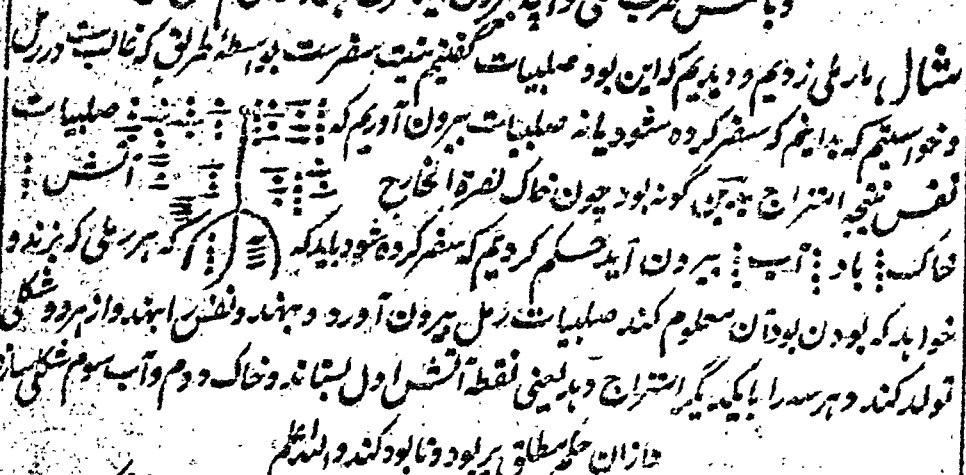 مثال بار ملی زدیم و دیدیم که این بود صلبیات گفتیم نیت سفرست بواسطهٔ طریق که غالبست در رمل
و خواستیم که بدانیم که سفر کرده شود یا نه صلبیات بیرون آوریم که صلبیات
نفس نتیجه امتزاج بدین گونه بود چون خاک نصرة الخارج آتش
خاک باد آب بیرون آید حکم کردیم که سفر کرده شود باید که که هر رملی که بزند و
خواهد که بودن بودآن معلوم کند صلبیات رمل بیرون آورد و بنهد و نفس را بنهد و از هر دو شکلی
تولد کند و هر سه را با یکدیگر امتزاج دهد یعنی نقطه آتش اول بستاند و خاک دوم و آب سوم شکلی سازد
و ازان حکم مطلق بر بود و نابود کند والله اعلم